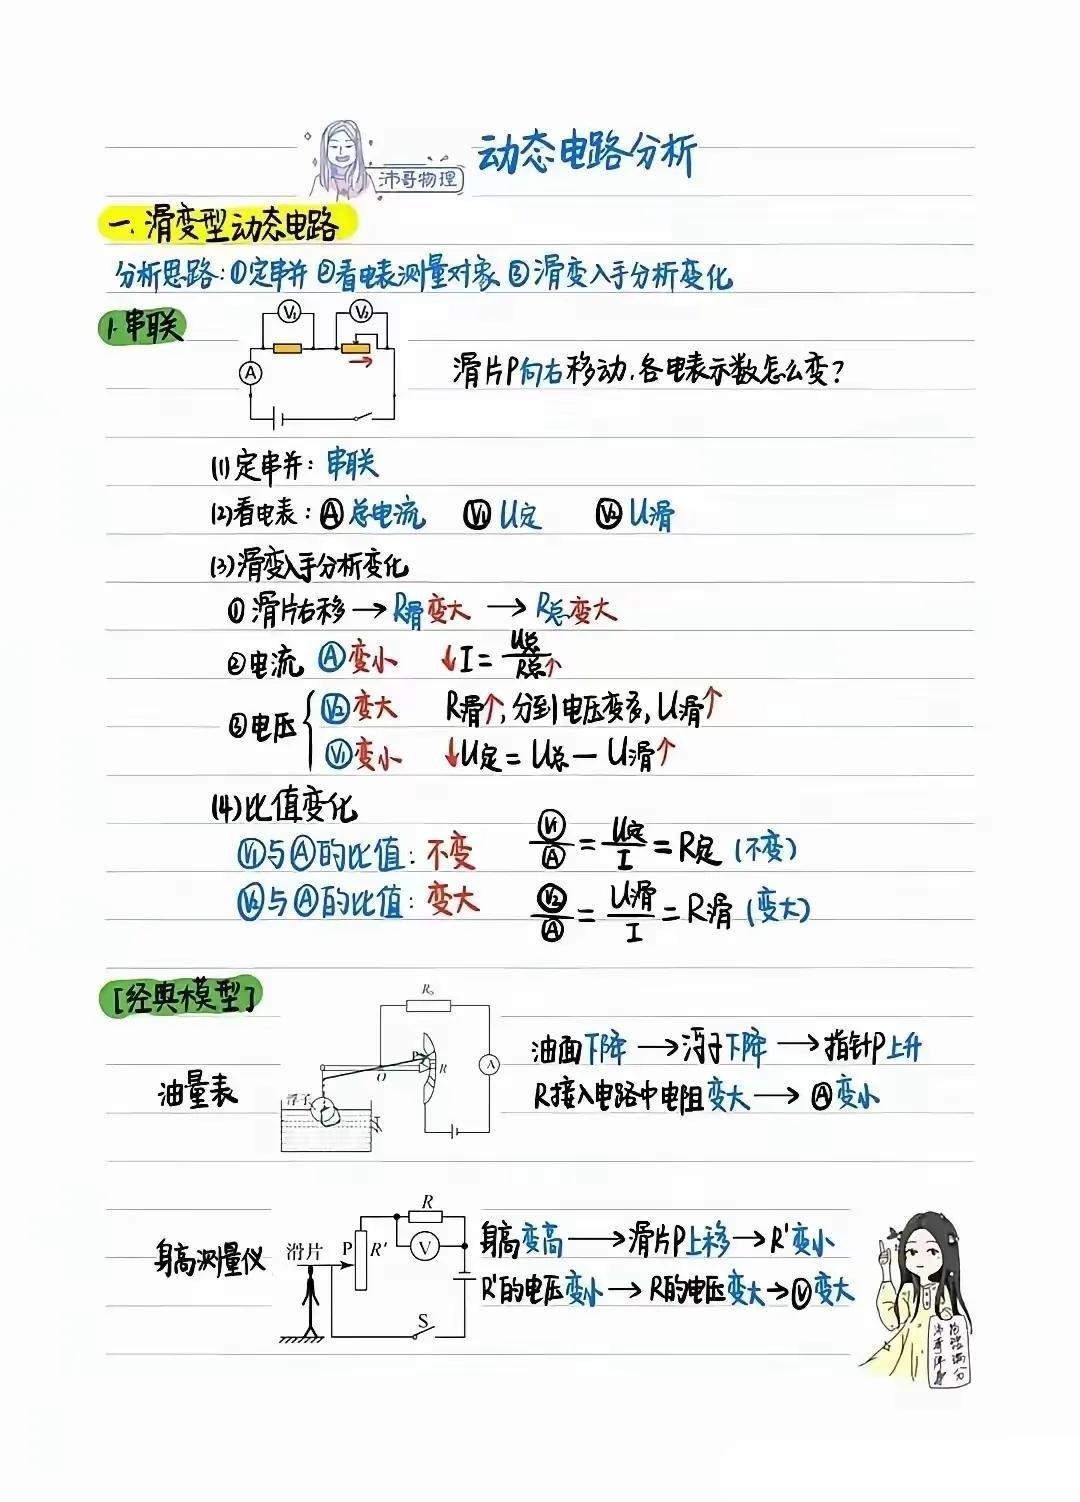 动态电路分析
沛哥物理
一、滑变型动态电路
分析思路:①定串并 ②看电表测量对象 ③滑变入手分析变化
1.串联
V₁ V₂
A
滑片P向右移动,各电表示数怎么变?
(1)定串并:串联
(2)看电表:Ⓐ总电流 V₁ U定 V₂ U滑
(3)滑变入手分析变化
①滑片右移→R滑变大→R总变大
②电流 Ⓐ变小 ↓I=U总/R总↑
③电压{V₂变大 R滑↑,分到电压变多,U滑↑
V₁变小 ↓U定=U总-U滑↑
(4)比值变化
V₁与Ⓐ的比值:不变 V₁/A=U定/I=R定(不变)
V₂与Ⓐ的比值:变大 V₂/A=U滑/I=R滑(变大)
[经典模型]
R₀
P R A
O
浮子
油量表
油面下降→浮子下降→指针P上升
R接入电路中电阻变大→Ⓐ变小
R
V
滑片 P R'
S
身高测量仪
身高变高→滑片P上移→R'变小
R'的电压变小→R的电压变大→Ⓥ变大